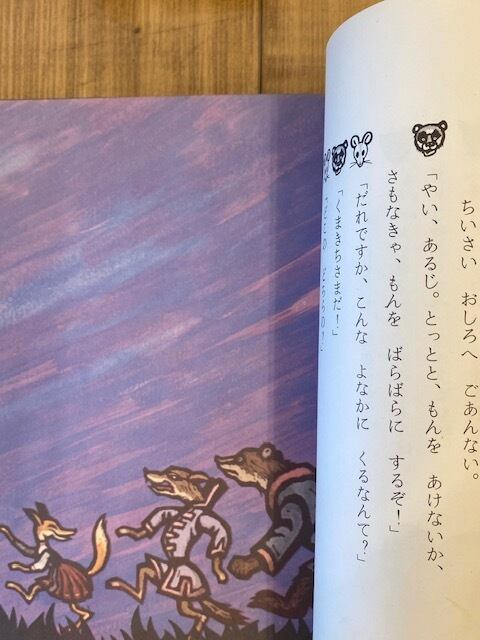 ちいさい　おしろへ　ごあんない。
「やい、あるじ。とっとと、もんを　あけないか、
さもなきゃ、もんを　ばらばらに　するぞ！」
「だれですか、こんな　よなかに　くるなんて？」
「くまきちさまだ！」
「どこの　どちらの！」